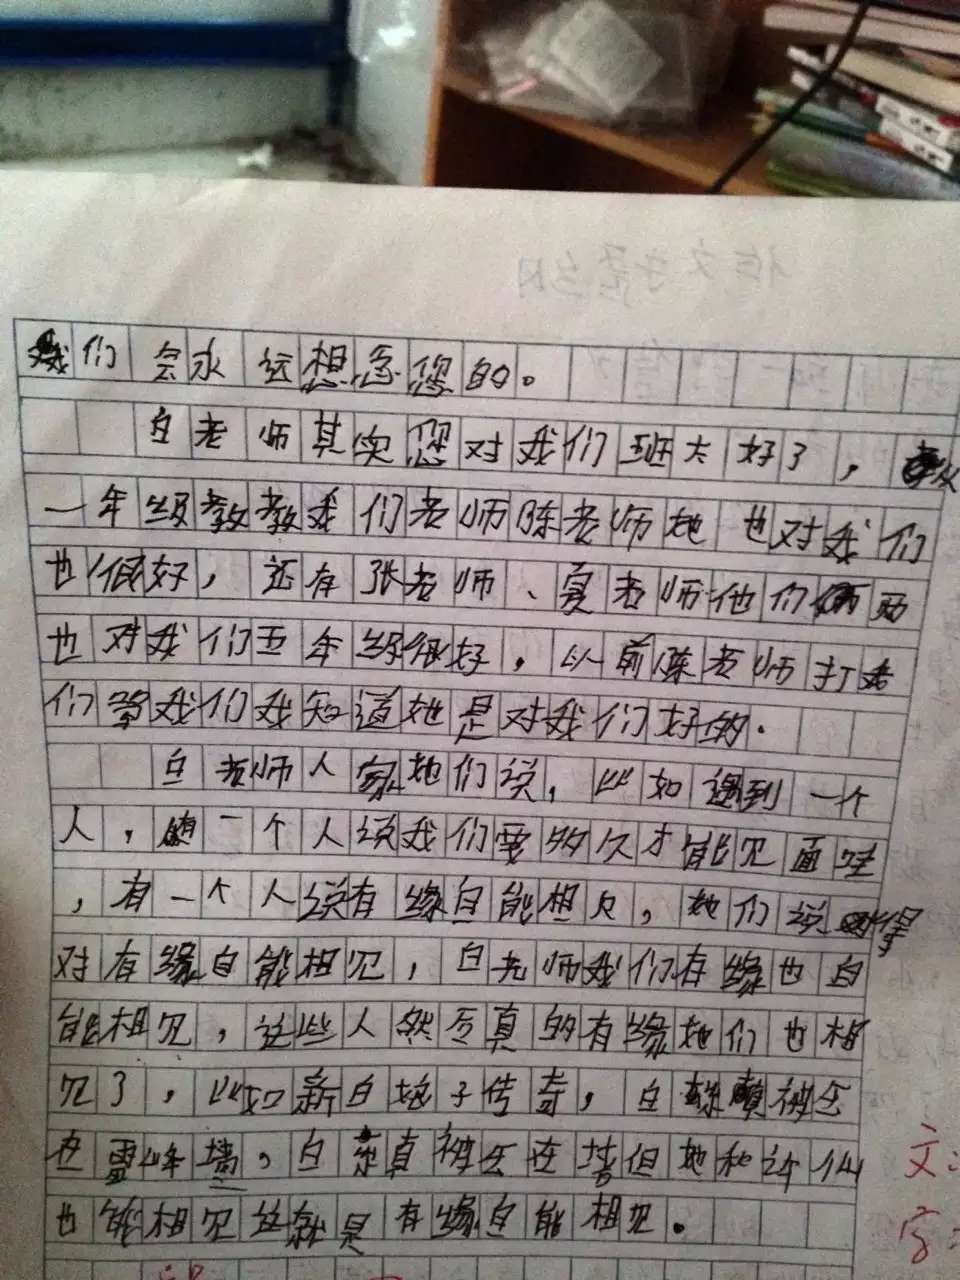 我们会永远想念您的。
白老师其实您对我们班太好了，教
一年级教教我们老师陈老师她也对我们
也很好，还有张老师、夏老师他们俩两
也对我们五年级很好，以前陈老师打我
们管我们我知道她是对我们好的.
白老师人家她们说，比如遇到一个
人，一个人说我们要多久才能见面呢
，有一个人说有缘自能相见，她们说得
对有缘自能相见，白老师我们有缘也自
能相见，这些人然后真的有缘她们也相
见了，比如新白娘子传奇，白被压
在雷峰塔，白素真被压在塔但她和许仙
也能相见这就是有缘自能相见.
文: